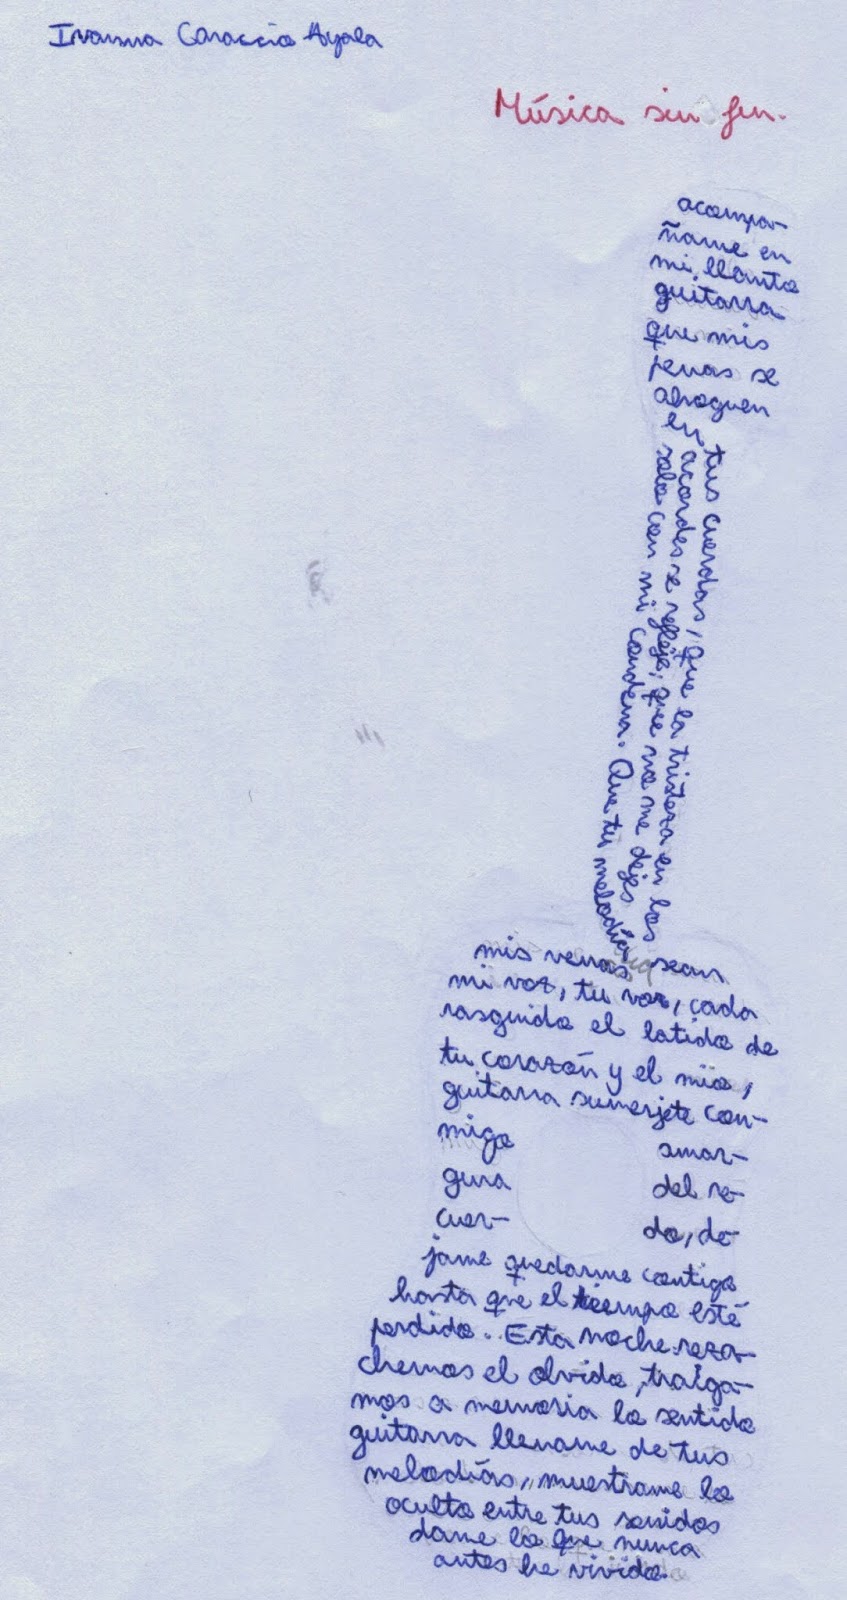 Ivanna Caraccio Ayala
Música sin fin.
acompa-
ñame en
mi llanto
guitarra
que mis
penas se
ahoguen
en tus cuerdas, Que la tristeza en los
acordes se refleje, que no me dejes
solo con mi condena. Que tu melodía
mis venas sean
mi voz, tu voz, cada
rasguido el latido de
tu corazón y el mío,
guitarra sumerjete con-
migo amar-
gura del re-
cuer- do, de-
jame quedarme contigo
hasta que el tiempo esté
perdido. Esta noche reza-
chemos el olvido, traiga-
mos a memoria lo sentido
guitarra llename de tus
melodías, muestrame lo
oculto entre tus sonidos
dame lo que nunca
antes he vivido.